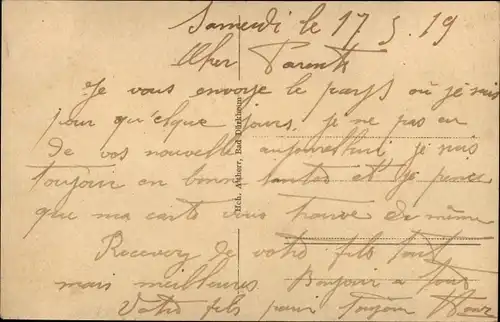 Samedi le 17 5 19
Cher Parents
Je vous envoye le pays où je suis
pour qu'elque jours. je ne pas eu
de vos nouvelle aujourdhui je suis
toujour en bonne santes et je pense
que ma carte vous trouve de même
Recevez de votre fils tout
mais meilleures Bonjour a tous
Votre fils pour toujour
Hch. Bad Dürkheim